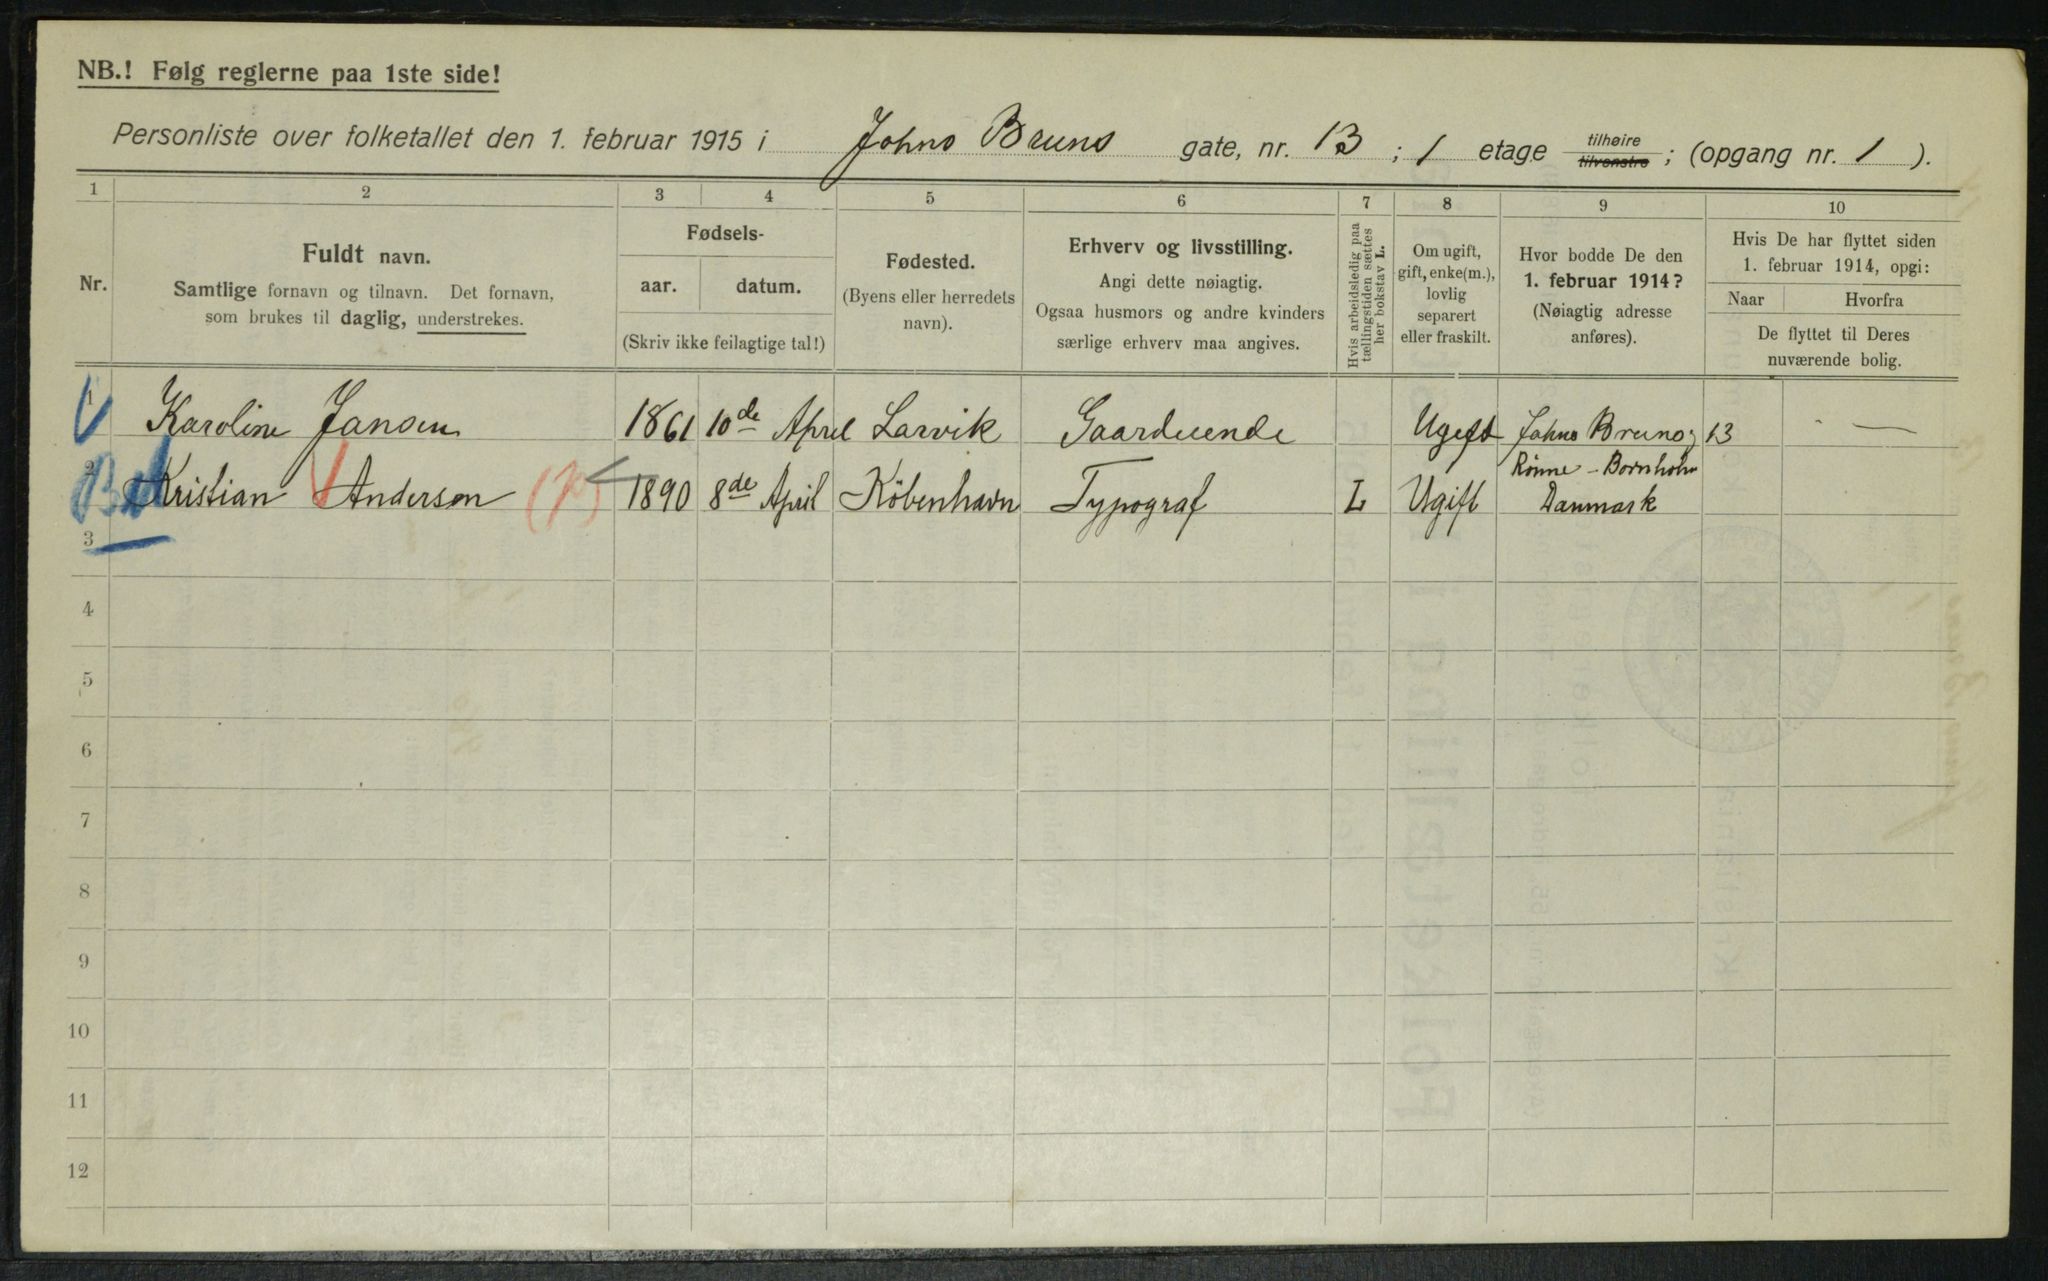 NB.! Følg reglerne paa 1ste side!
Personliste over folketallet den 1. februar 1915 i Johns Bruns gate, nr. 13 ; 1 etage tilhøire tilvenstre ; (opgang nr. 1 ).
1 2 3 4 5 6 7 8 9 10
Nr.
Fuldt navn.
Samtlige fornavn og tilnavn. Det fornavn,
som brukes til daglig, understrekes.
Fødsels-
aar. datum.
(Skriv ikke feilagtige tal!)
Fødested.
(Byens eller herredets
navn).
Erhverv og livsstilling.
Angi dette nøiagtig.
Ogsaa husmors og andre kvinders
særlige erhverv maa angives.
Hvis arbeidsledig paa
tællingstiden sættes
her bokstav L.
Om ugift,
gift, enke(m.),
lovlig
separert
eller fraskilt.
Hvor bodde De den
1. februar 1914?
(Nøiagtig adresse
anføres).
Hvis De har flyttet siden
1. februar 1914, opgi:
Naar Hvorfra
De flyttet til Deres
nuværende bolig.
1 Karoline Jansen 1861 10de April Larvik Gaardeiende Ugift Johns Bruns g 13 - —
2 Kristian Anderson 1890 8de April København Typograf L Ugift Rønne - Bornholm
Danmark
3
4
5
6
7
8
9
10
11
12